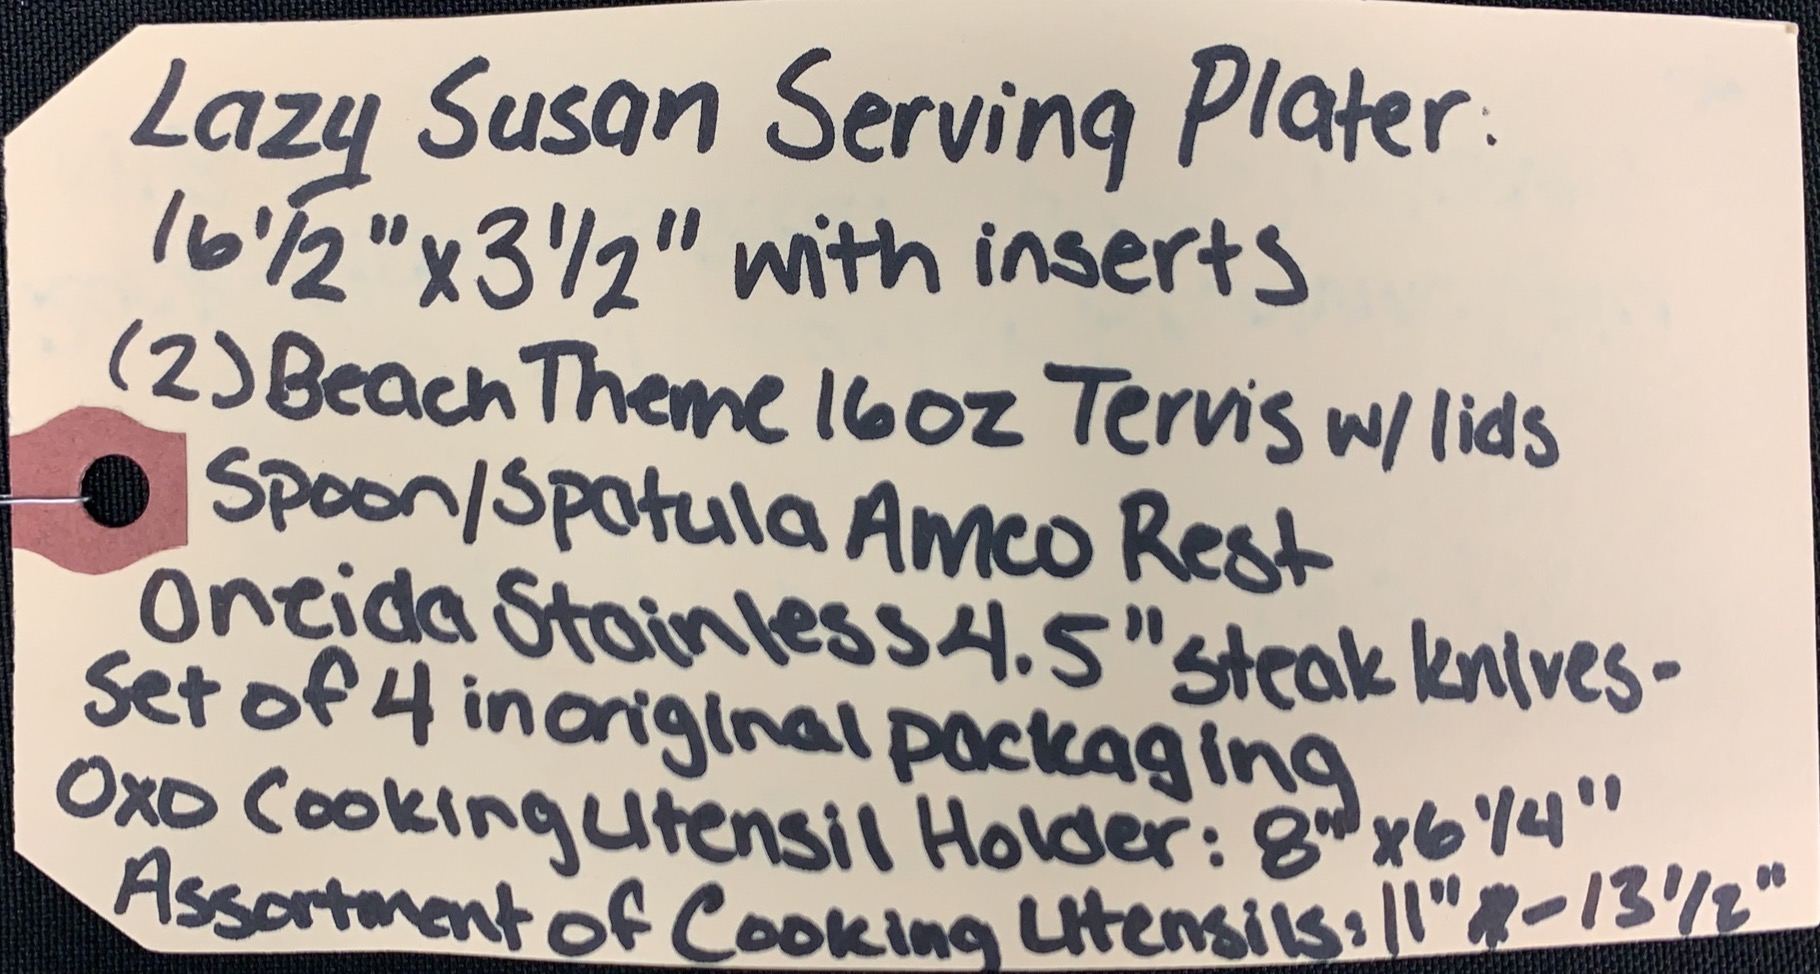 Lazy Susan Serving Plater:
16 1/2" x 3 1/2" with inserts
(2) Beach Theme 16oz Tervis w/ lids
Spoon/Spatula Amco Rest
Oneida Stainless 4.5" steak knives-
Set of 4 in original packaging
OXO Cooking Utensil Holder: 8" x 6 1/4"
Assortment of Cooking Utensils: 11" - 13 1/2"